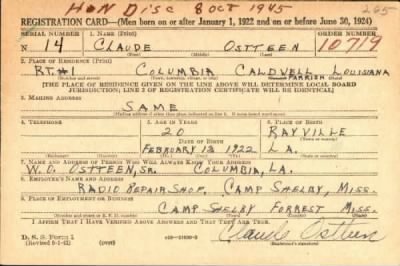 Hon Disc 8 Oct 1945 265
REGISTRATION CARD—(Men born on or after January 1, 1922 and on or before June 30, 1924)
SERIAL NUMBER 1. NAME (Print) ORDER NUMBER
N 14 CLAUDE OSTTEEN 10719
(First) (Middle) (Last)
2. PLACE OF RESIDENCE (Print)
RT.#1 COLUMBIA CALDWELL LOUISIANA
PARRISH
[THE PLACE OF RESIDENCE GIVEN ON THE LINE ABOVE WILL DETERMINE LOCAL BOARD
JURISDICTION; LINE 2 OF REGISTRATION CERTIFICATE WILL BE IDENTICAL]
3. MAILING ADDRESS
SAME
[Mailing address if other than place indicated on line 2. If same insert word same]
4. TELEPHONE 5. AGE IN YEARS 6. PLACE OF BIRTH
20 RAYVILLE
DATE OF BIRTH
FEBRUARY 13 1922 LA.
(Mo.) (Day) (Yr.)
7. NAME AND ADDRESS OF PERSON WHO WILL ALWAYS KNOW YOUR ADDRESS
W. O. OSTTEEN, SR. COLUMBIA, LA.
8. EMPLOYER'S NAME AND ADDRESS
RADIO REPAIR SHOP, CAMP SHELBY, MISS.
9. PLACE OF EMPLOYMENT OR BUSINESS
CAMP SHELBY FORREST MISS.
I AFFIRM THAT I HAVE VERIFIED ABOVE ANSWERS AND THAT THEY ARE TRUE.
D. S. S. Form 1
(Revised 6-1-42)
Claude Ostteen
(Registrant's signature)